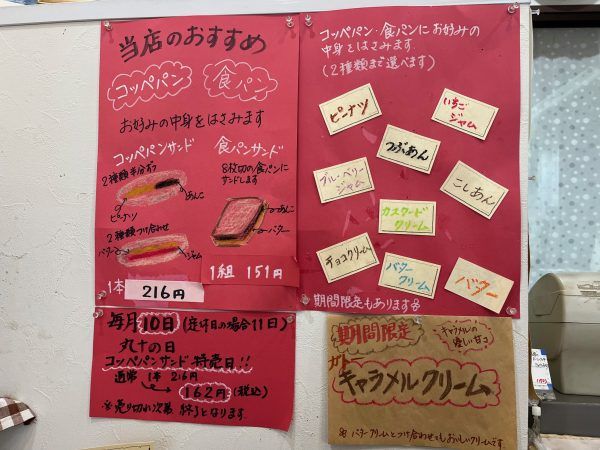 当店のおすすめ
コッペパン
食パン
お好みの中身をはさみます
コッペパンサンド
2種類半分ずつ
あんこ
ピーナツ
2種類つけ合わせ
バター
ジャム
1本
216円
食パンサンド
8枚切の食パンに
サンドします
あんこ
バター
1組 151円
コッペパン・食パンにお好みの
中身をはさみます
(2種類まで選べます)
ピーナツ
いちご
ジャム
つぶあん
ブルーベリー
ジャム
こしあん
カスタード
クリーム
チョコクリーム
バター
クリーム
バター
期間限定もあります
毎月10日(定休日の場合11日)
丸十の日
コッペパンサンド特売日!!
通常 1本 216円
162円(税込)
※売り切れ次第 終了となります。
期間限定
キャラメルの
優しい甘さ
キャラメルクリーム
バタークリームとつけ合わせてもおいしいクリームです。